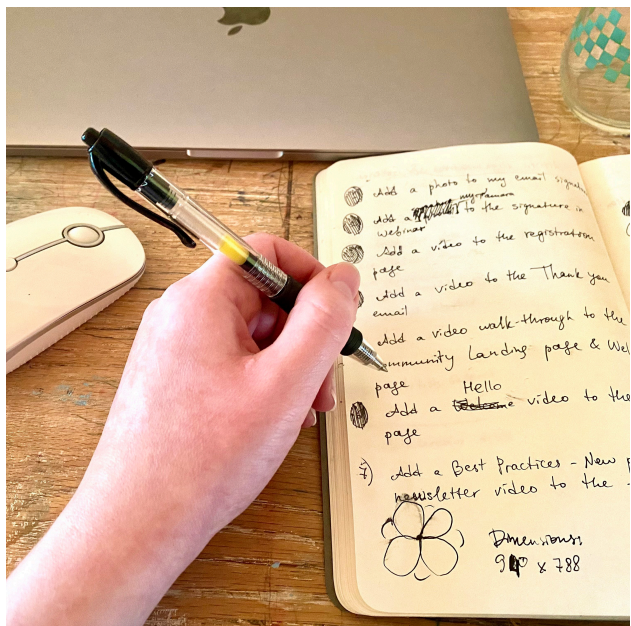 Add a photo to my email signature
my camera
Add a to the signature in
webinar
Add a video to the registration
page
Add a video to the Thank you
email
Add a video walk-through to the
Community Landing page & Wel
page
Hello
Add a Welcome video to the
page
7) Add a Best Practices - New p
newsletter video to the -
Dimensions:
910 x 788